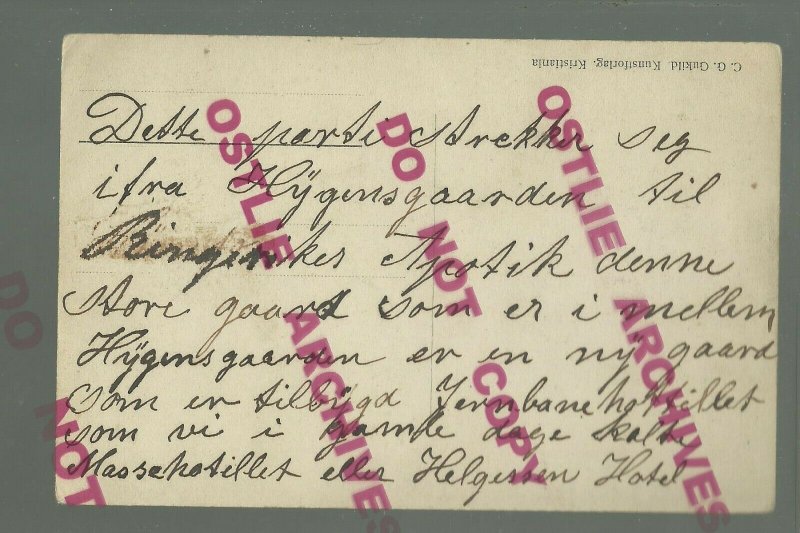 C. G. Gukild. Kunstforlag, Kristiania
Dette parti strekker seg
ifra Hÿgensgaarden til
Ringerikes Apotik denne
store gaard som er i mellem
Hÿgensgaarden er en nÿ gaard
som er tilbÿgd Jernbanehotillet
som vi i gamle dage kalte
Massehotillet eller Helgessen Hotel
OSTLIE ARCHIVES
DO NOT COPY
OSTLIE ARCHIVES
DO NOT